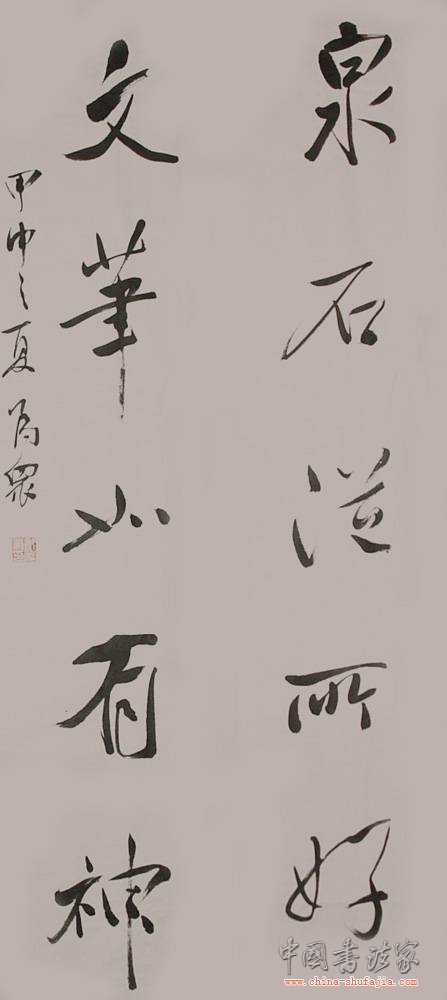 泉石從所好
文筆如有神
甲申之夏
中國書法家
www.china-shufajia.com